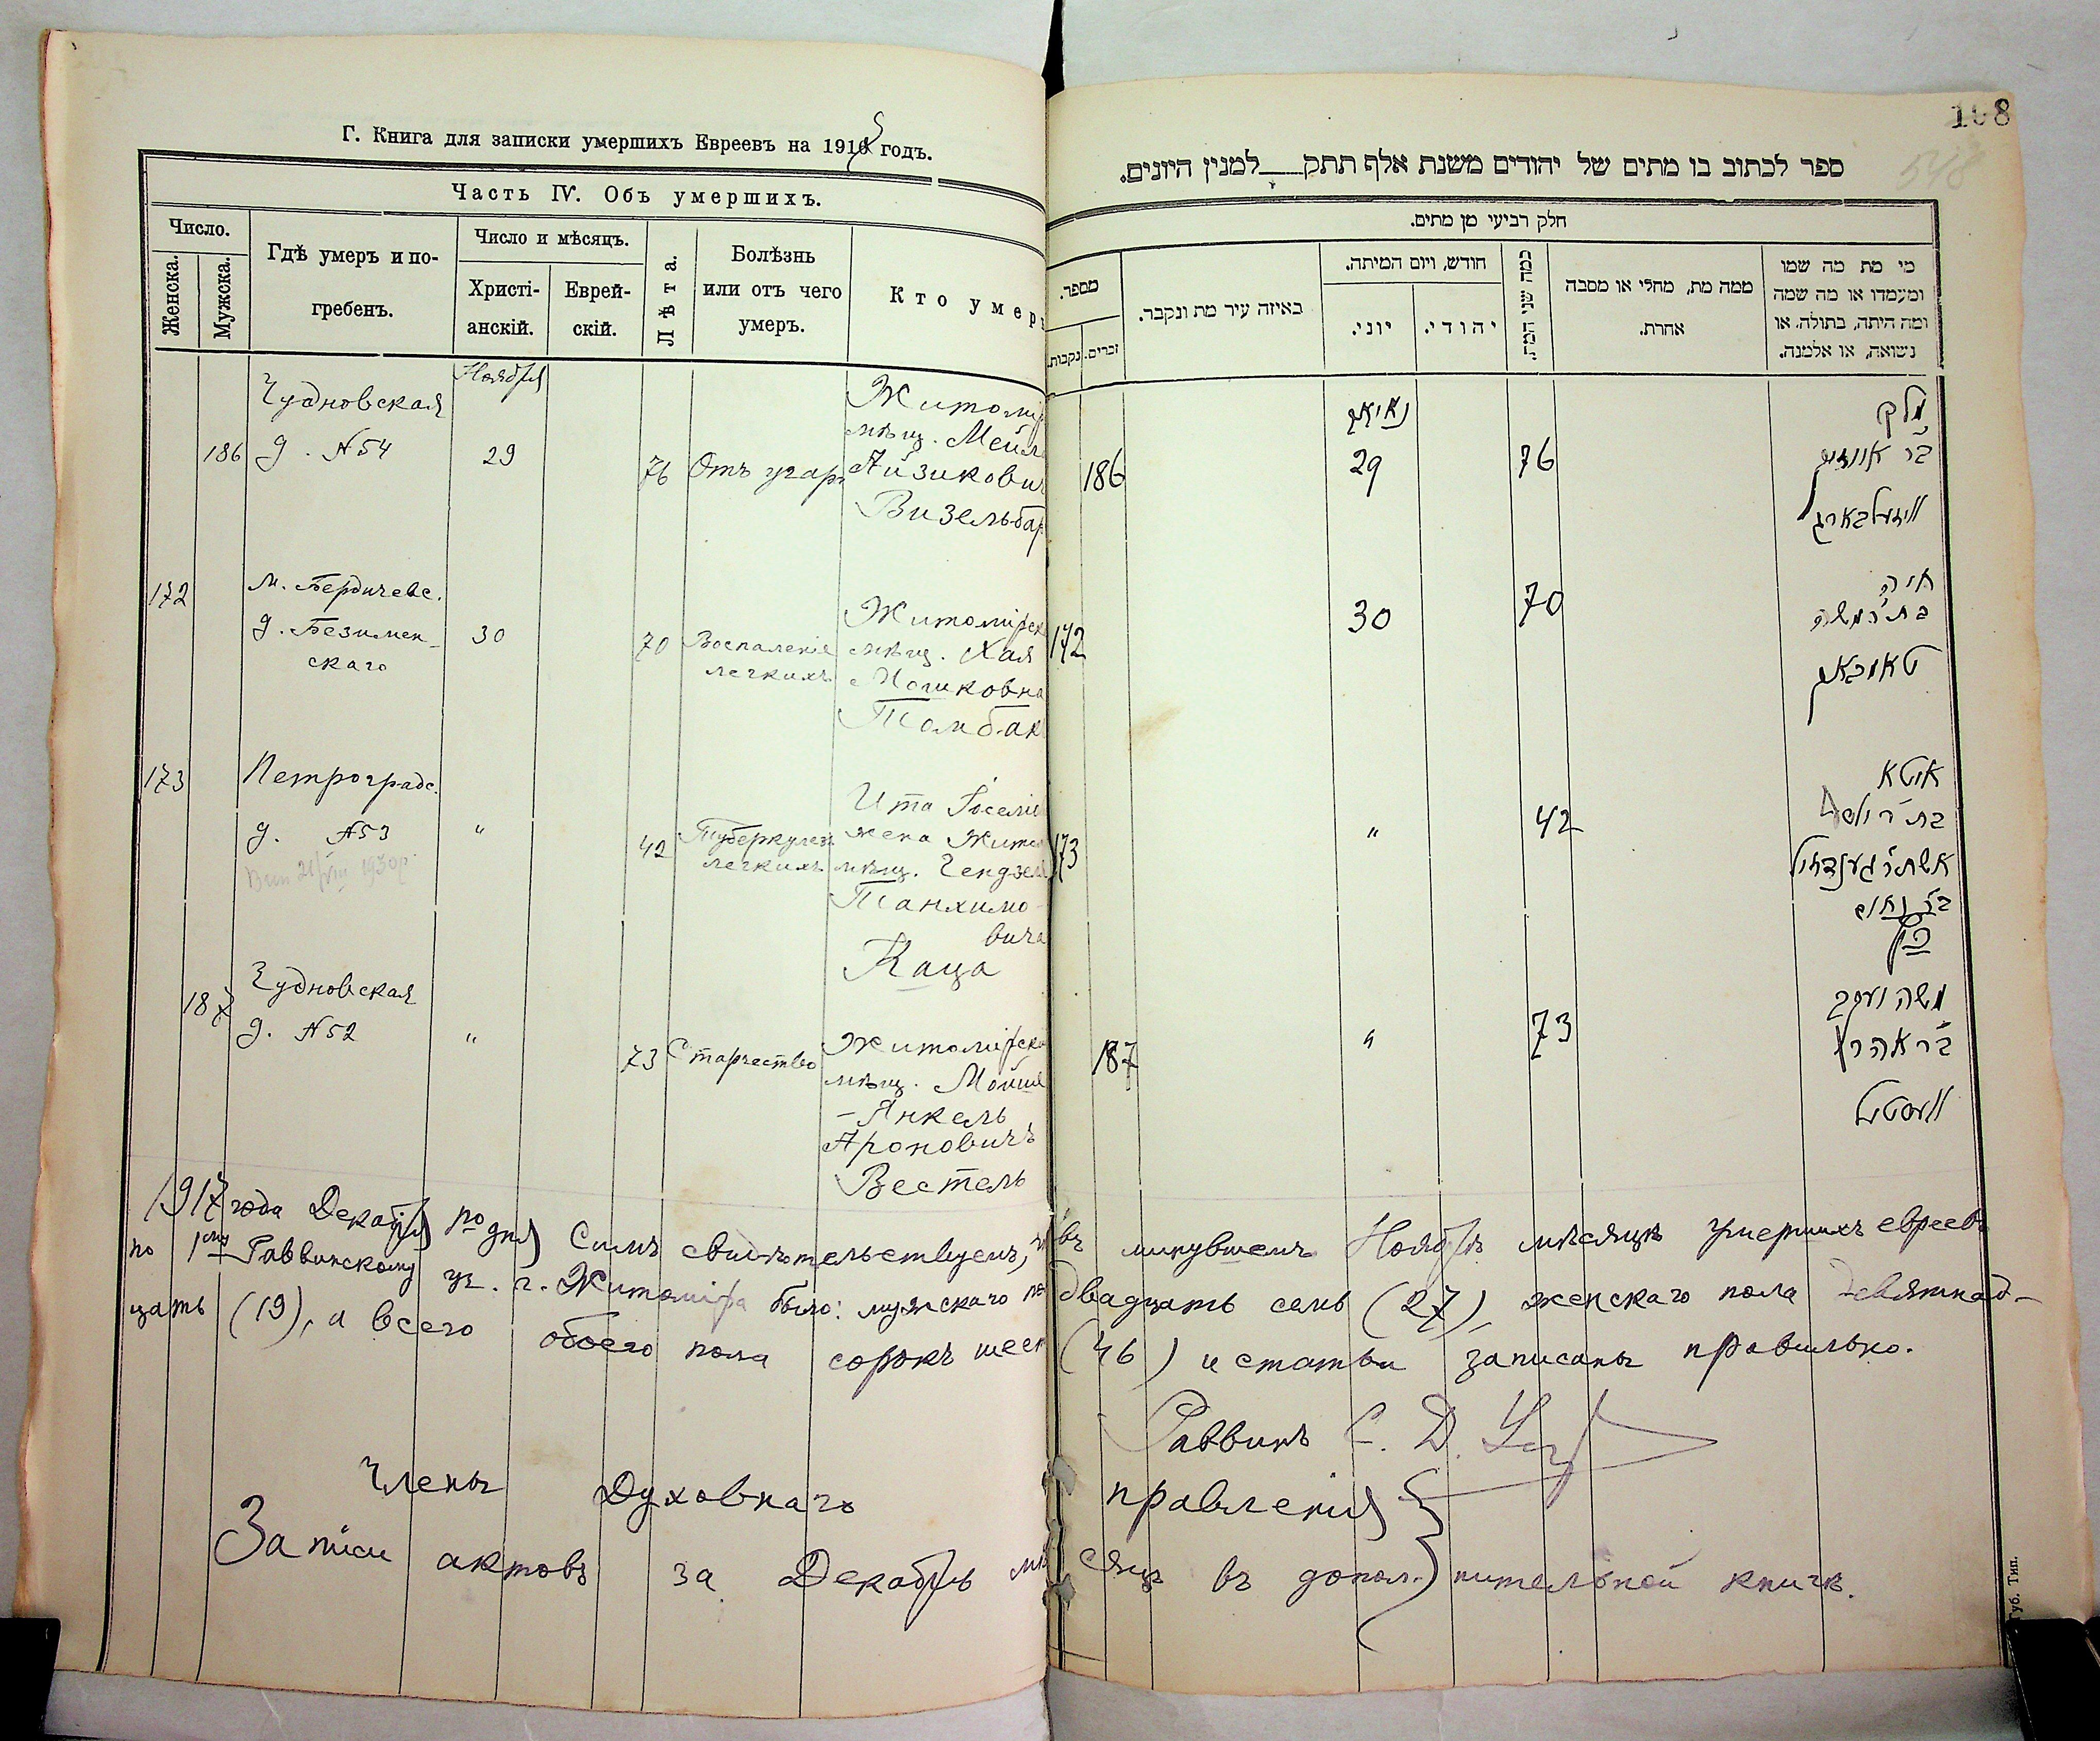 Г. Книга для записки умершихъ Евреевъ на 191 годъ.
Часть IV. Объ умершихъ.
Число.
Женска.
Мужска.
Гдѣ умеръ и по-
гребенъ.
Число и мѣсяцъ.
Христі-
анскій.
Еврей-
скій.
Лѣта.
Болѣзнь
или отъ чего
умеръ.
Кто умер
Ноября
186
Чудновская
д. №54
29
76
Отъ угар
Житомір
мѣщ. Мейл
Айзикович
Визельбар
172
М. Бердичевс.
д. Безимен-
скаго
30
70
Воспаленіе
легкихъ
Житомірск
мѣщ. Хая
Мошковна
Томбак
173
Петроградс.
д. №53
"
42
Туберкулез
легкихъ
Ита
жена Жито
мѣщ. Гендзел
Танхимо-
вича
Каца
187
Чудновская
д. №52
"
73
Старчество
Житомірск
мѣщ. Мойше
-Янкель
Ароновичъ
Вестель
108
548
ספר לכתוב בו מתים של יהודים משנת אלף תתק למנין היונים.
חלק רביעי מן מתים.
מספר.
נקבות.
זכרים.
באיזה עיר מת ונקבר.
חודש, ויום המיתה.
יוני.
יהודי.
כמה שני המת.
ממה מת, מחלי או מסבה
אחרת.
מי מת מה שמו
ומעמדו או מה שמה
ומה היתה, בתולה, או
נשואה, או אלמנה.
186
29
76
וויזעלבארג
172
30
70
חיה
בת ר' משה
טאמבאק
173
"
42
איטא
כץ
187
"
73
משה יעקב
בר אהרן
וועסטיל
1917 года Декабря дня Симъ свидѣтельствуемъ, ч въ минувшемъ Ноябрѣ мѣсяцѣ умершихъ евреевъ
по 1му Раввинскому уч. г. Житоміра было: мужского по двадцать семь (27), женскаго пола девятнад-
цать (19), а всего обоего пола сорокъ шест (46) и статьи записаны правильно.
Раввинъ С. Д.
Члены Духовнаго правленія
Записи актовъ за Декабрь мѣ сяцъ въ допол- нительной книгѣ.
Губ. Тип.